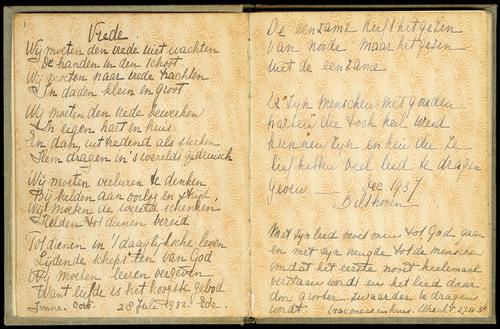 Vrede.
Wij moeten den vrede niet wachten
De handen in den schoot
Wij moeten naar vrede trachten
In daden klein en groot
Wij moeten den vrede bewerken
In eigen hart en huis
En dan, uittredend als sterken
Hem dragen in 's werelds gedruisch
Wij moeten verleeren te denken
Bij helden aan oorlog en strijd,
Wij moeten de wereld schenken
Helden tot dienen bereid
Tot dienen in 't daaglijksche leven
Lijdende schepslen van God
Wij moeten leeren vergeven
Want liefde is het hoogste gebod
28 Juli 1932. Ede.
De eenzame heeft het gezin
van noode, maar het gezin
niet de eenzame
Er zijn menschen met gouden
harten die toch heel wreed
kunnen zijn en hun die ze
liefhebben veel leed te dragen
geven
Dec 1937
Bilthoven
Met zijn leed moet men tot God gaan
en met zijn vreugde tot de menschen
omdat het eerste nooit heelemaal
verstaan wordt en het leed daar
door grooter, zwaarder te dragen
wordt. Diaconessenhuis. Utrecht 27.10.38